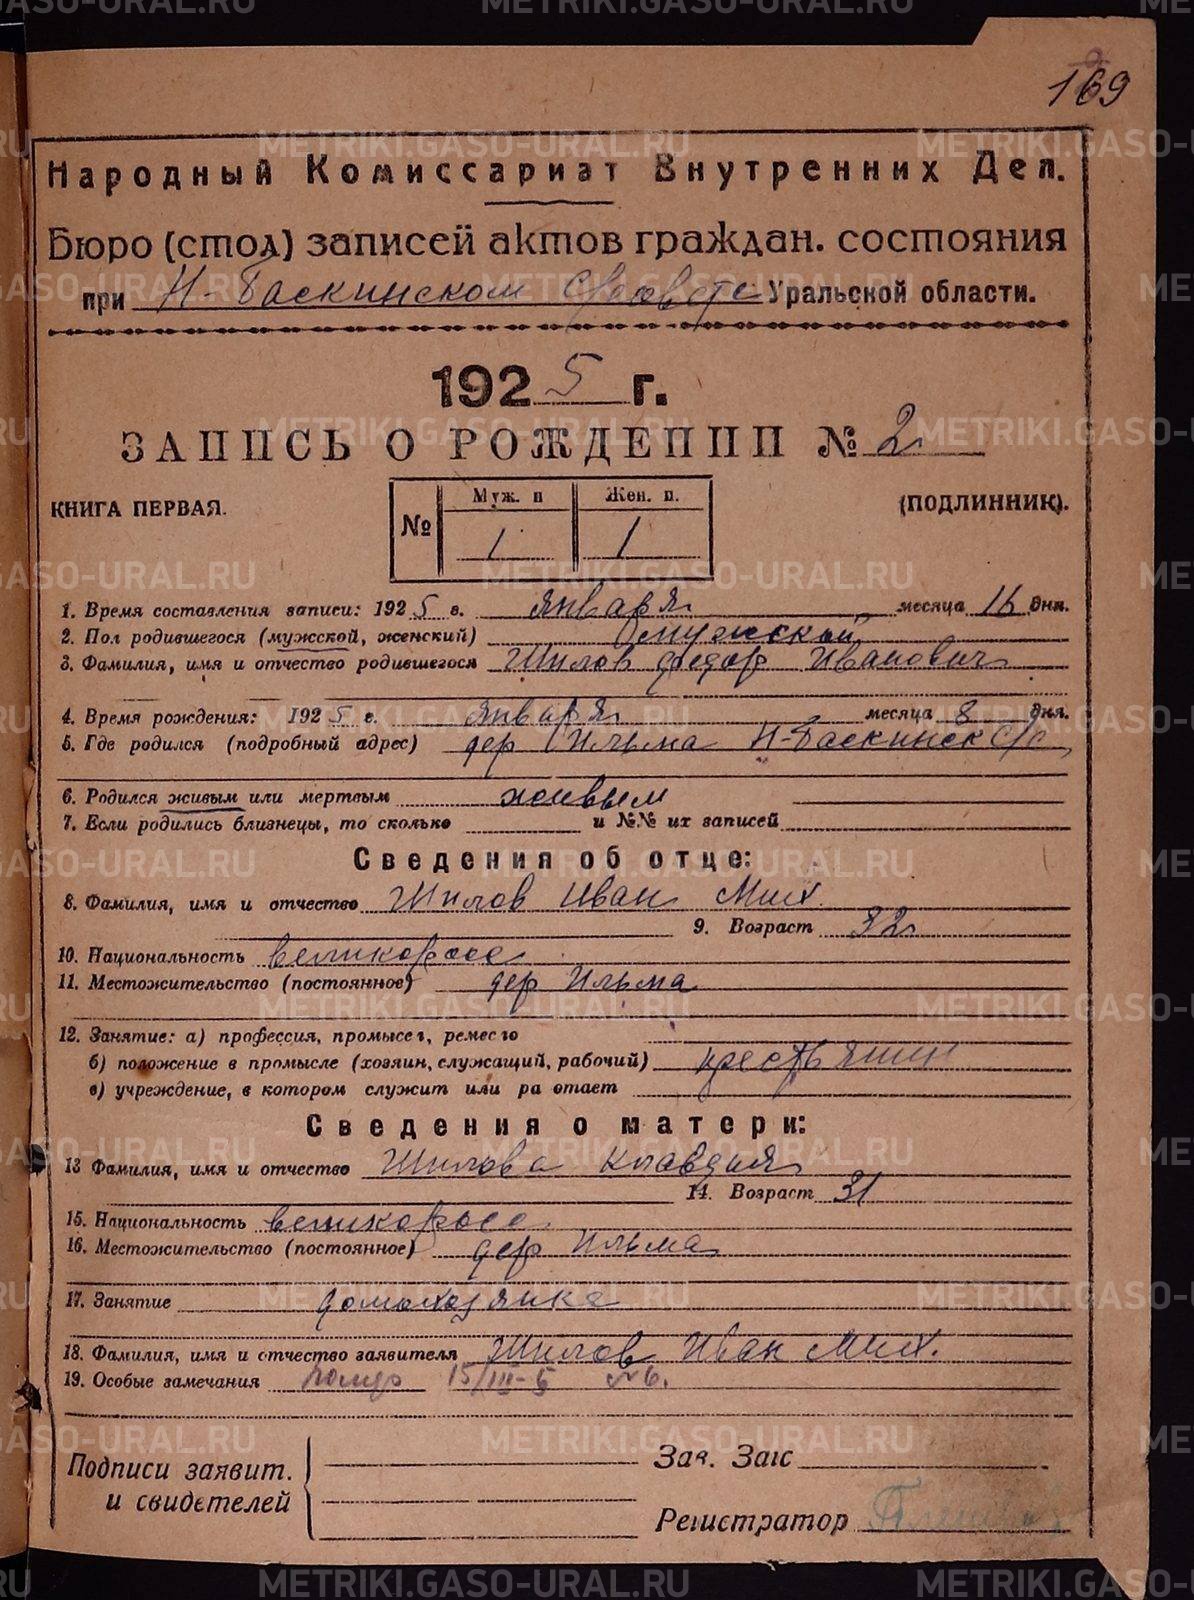 169
Народный Комиссариат Внутренних Дел.
Бюро (стол) записей актов граждан. состояния
при Н-Баскинском С/Совете Уральской области.
1925 г.
ЗАПИСЬ О РОЖДЕНИИ № 2
КНИГА ПЕРВАЯ. (ПОДЛИННИК).
№ Муж. п Жен. п.
1 1
1. Время составления записи: 1925 г. января месяца 16 дня.
2. Пол родившегося (мужсской, женский) мужской
3. Фамилия, имя и отчество родившегося Шилов Федор Иванович
4. Время рождения: 1925 г. января месяца 8 дня.
5. Где родился (подробный адрес) дер Ильма Н-Баскинск С/С
6. Родился живым или мертвым живым
7. Если родились близнецы, то сколько и №№ их записей
Сведения об отце:
8. Фамилия, имя и отчество Шилов Иван Мих.
9. Возраст 32
10. Национальность великоросс
11. Местожительство (постоянное) дер Ильма
12. Занятие: а) профессия, промысел, ремесло
б) положение в промысле (хозяин, служащий, рабочий) крестьянин
в) учреждение, в котором служит или ра отает
Сведения о матери:
13 Фамилия, имя и отчество Шилова Клавдия
14. Возраст 31
15. Национальность великоросс
16. Местожительство (постоянное) дер Ильма
17. Занятие домохозяйка
18. Фамилия, имя и отчество заявителя Шилов Иван Мих.
19. Особые замечания 15/III-5 №6.
Подписи заявит. Зав. Загс
и свидетелей
Регистратор
METRIKI.GASO-URAL.RU